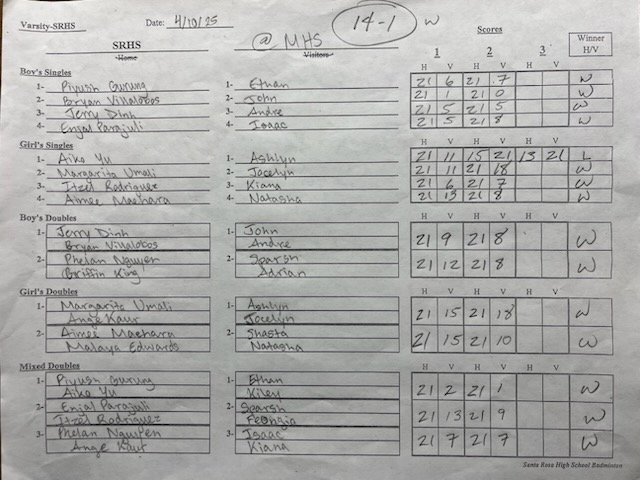 Varsity-SRHS Date: 4/10/25 14-1 W
Scores
SRHS @ MHS 1 2 3 Winner
Home Visitors H V H V H V H/V
Boy's Singles
1- Piyush Gurung 1- Ethan 21 6 21 7 W
2- Bryan Villalobos 2- John 21 1 21 0 W
3- Jerry Dinh 3- Andre 21 5 21 5 W
4- Enjal Parajuli 4- Isaac 21 5 21 8 W
Girl's Singles H V H V H V
1- Aiko Yu 1- Ashlyn 21 11 15 21 13 21 L
2- Margarita Umali 2- Jocelyn 21 11 21 18 W
3- Itzel Rodriguez 3- Kiana 21 6 21 7 W
4- Aimee Maehara 4- Natasha 21 13 21 8 W
Boy's Doubles H V H V H V
1- Jerry Dinh 1- John
Bryan Villalobos Andre 21 9 21 8 W
2- Phelan Nguyen 2- Sparsh
Griffin King Adrian 21 12 21 8 W
Girl's Doubles H V H V H V
1- Margarita Umali 1- Ashlyn
Ange Kaur Jocelyn 21 15 21 18 W
2- Aimee Maehara 2- Shasta
Malaya Edwards Natasha 21 15 21 10 W
Mixed Doubles H V H V H V
1- Piyush Gurung 1- Ethan
Aiko Yu Kiley 21 2 21 1 W
2- Enjal Parajuli 2- Sparsh
Itzel Rodriguez 21 13 21 9 W
3- Phelan Nguyen 3- Isaac
Ange Kaur Kiana 21 7 21 7 W
Santa Rosa High School Badminton